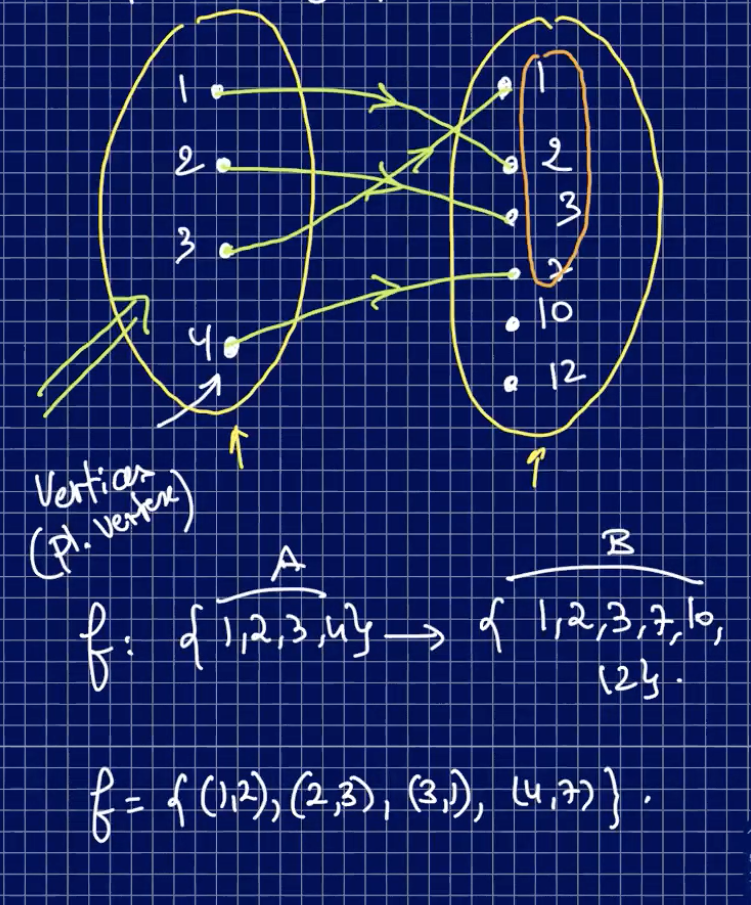 1
2
3
4
1
2
3
7
10
12
Vertices
(pl. vertex)
A
B
f: {1,2,3,4} → { 1,2,3,7,10,
12}.
f = { (1,2), (2,3), (3,1), (4,7) }.